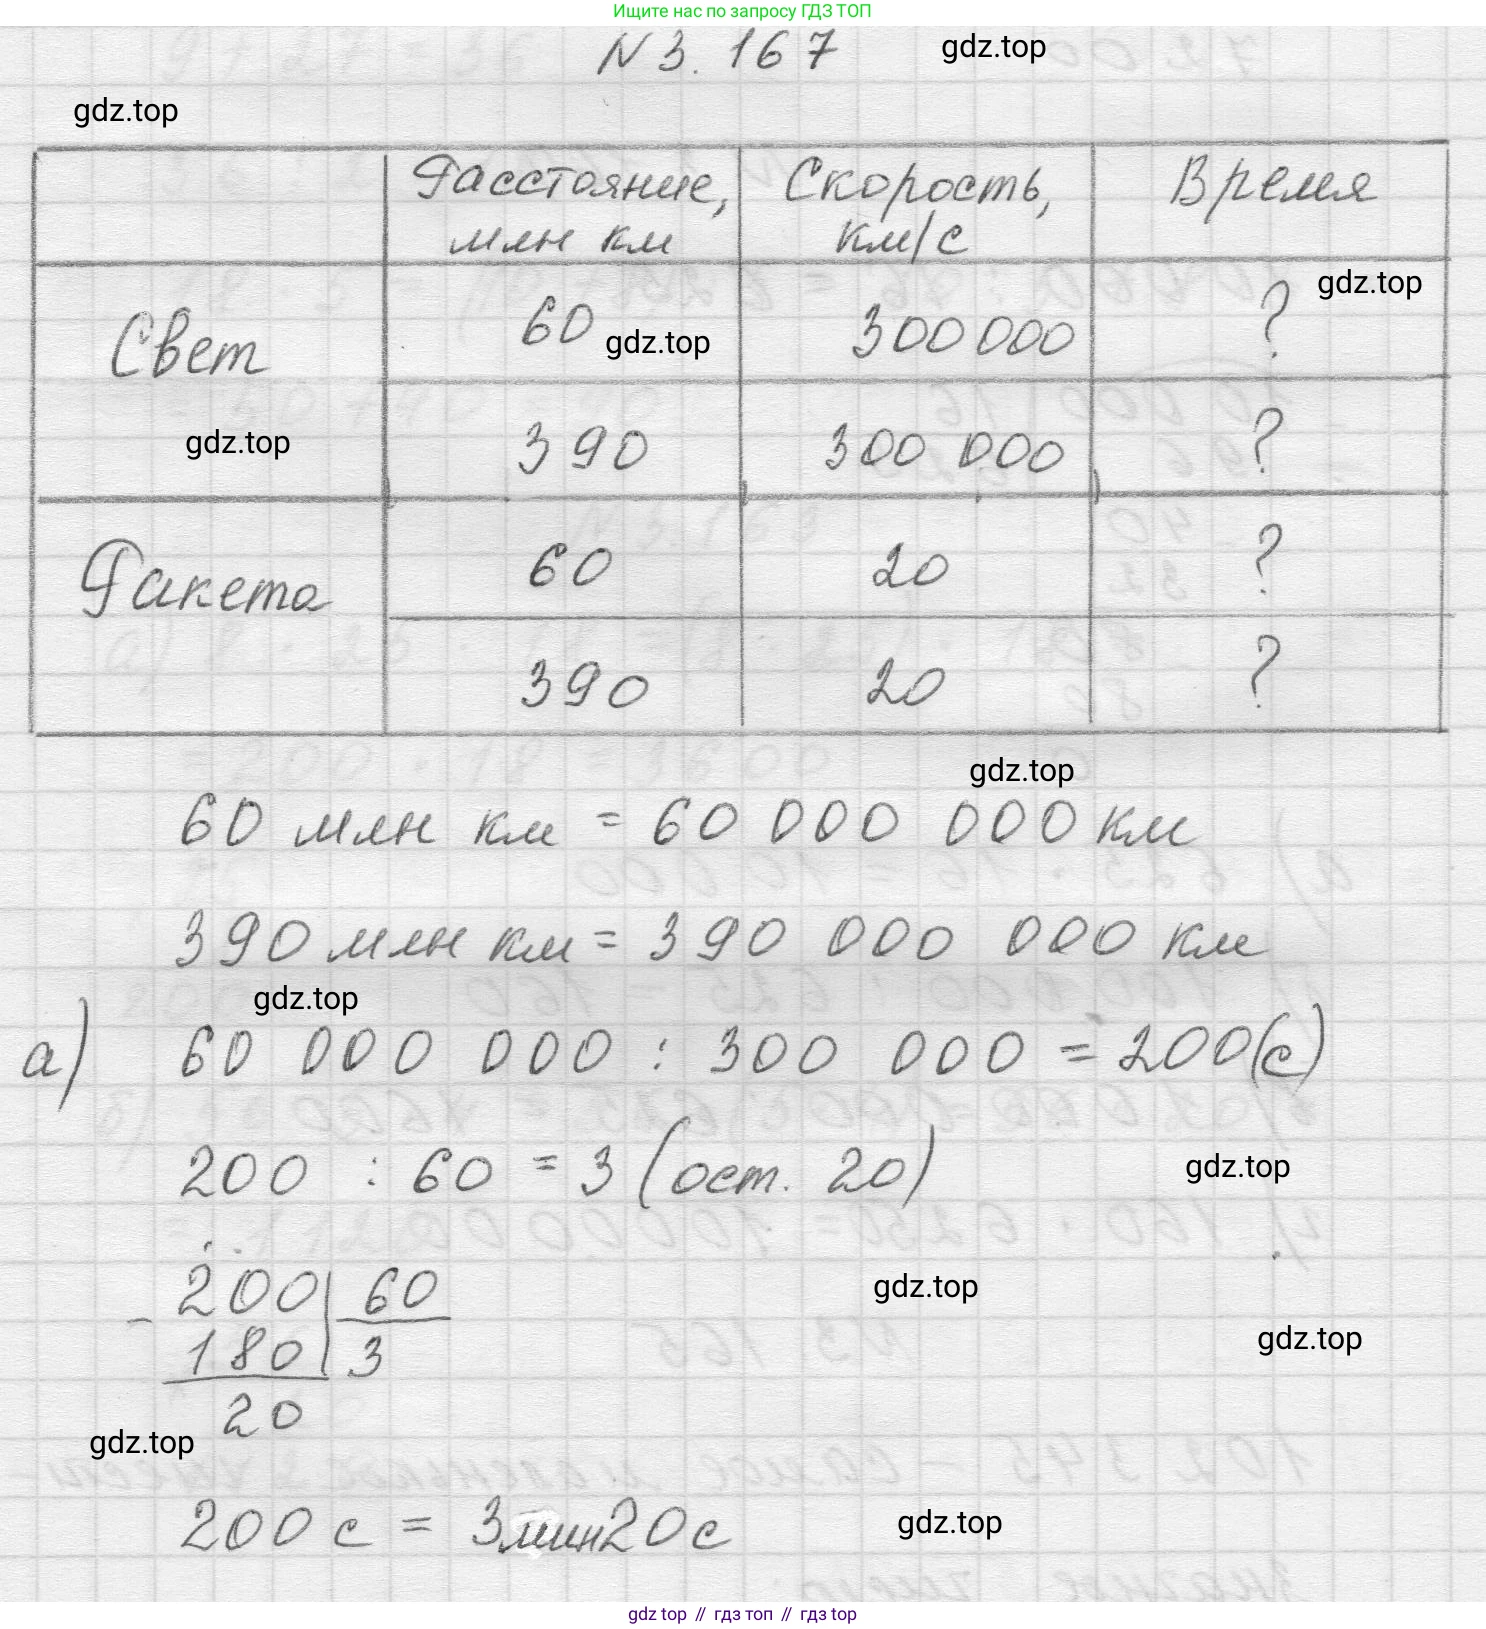 Ищите нас по запросу ГДЗ ТОП
N 3.167
gdz.top
gdz.top
Расстояние, млн км
Скорость, км/с
Время
Свет
60
300 000
?
gdz.top
gdz.top
gdz.top
390
300 000
?
Ракета
60
20
?
390
20
?
gdz.top
60 млн км = 60 000 000 км
390 млн км = 390 000 000 км
gdz.top
а) 60 000 000 : 300 000 = 200(с)
200 : 60 = 3 (ост. 20)
gdz.top
- 200 | 60
180 | 3
20
gdz.top
gdz.top
gdz.top
200 с = 3мин20с
gdz.top
gdz top // гдз топ // gdz top